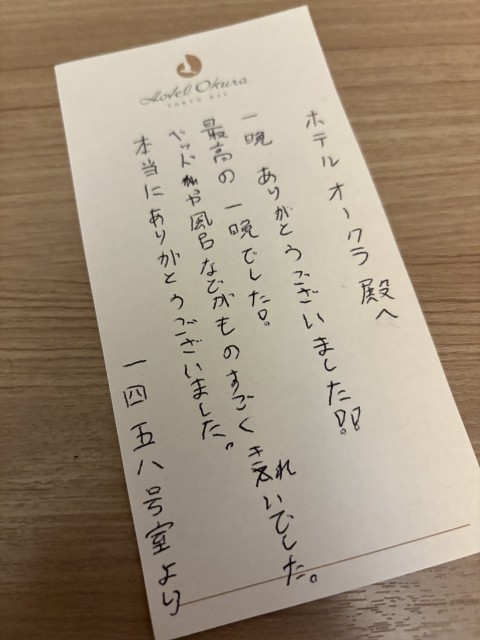 Hotel Okura
TOKYO BAY
ホテルオークラ殿へ
一晩 ありがとうございました!!
最高の一晩でした。
ベッドや風呂などがものすごくきれいでした。
本当にありがとうございました。
一四五八号室より